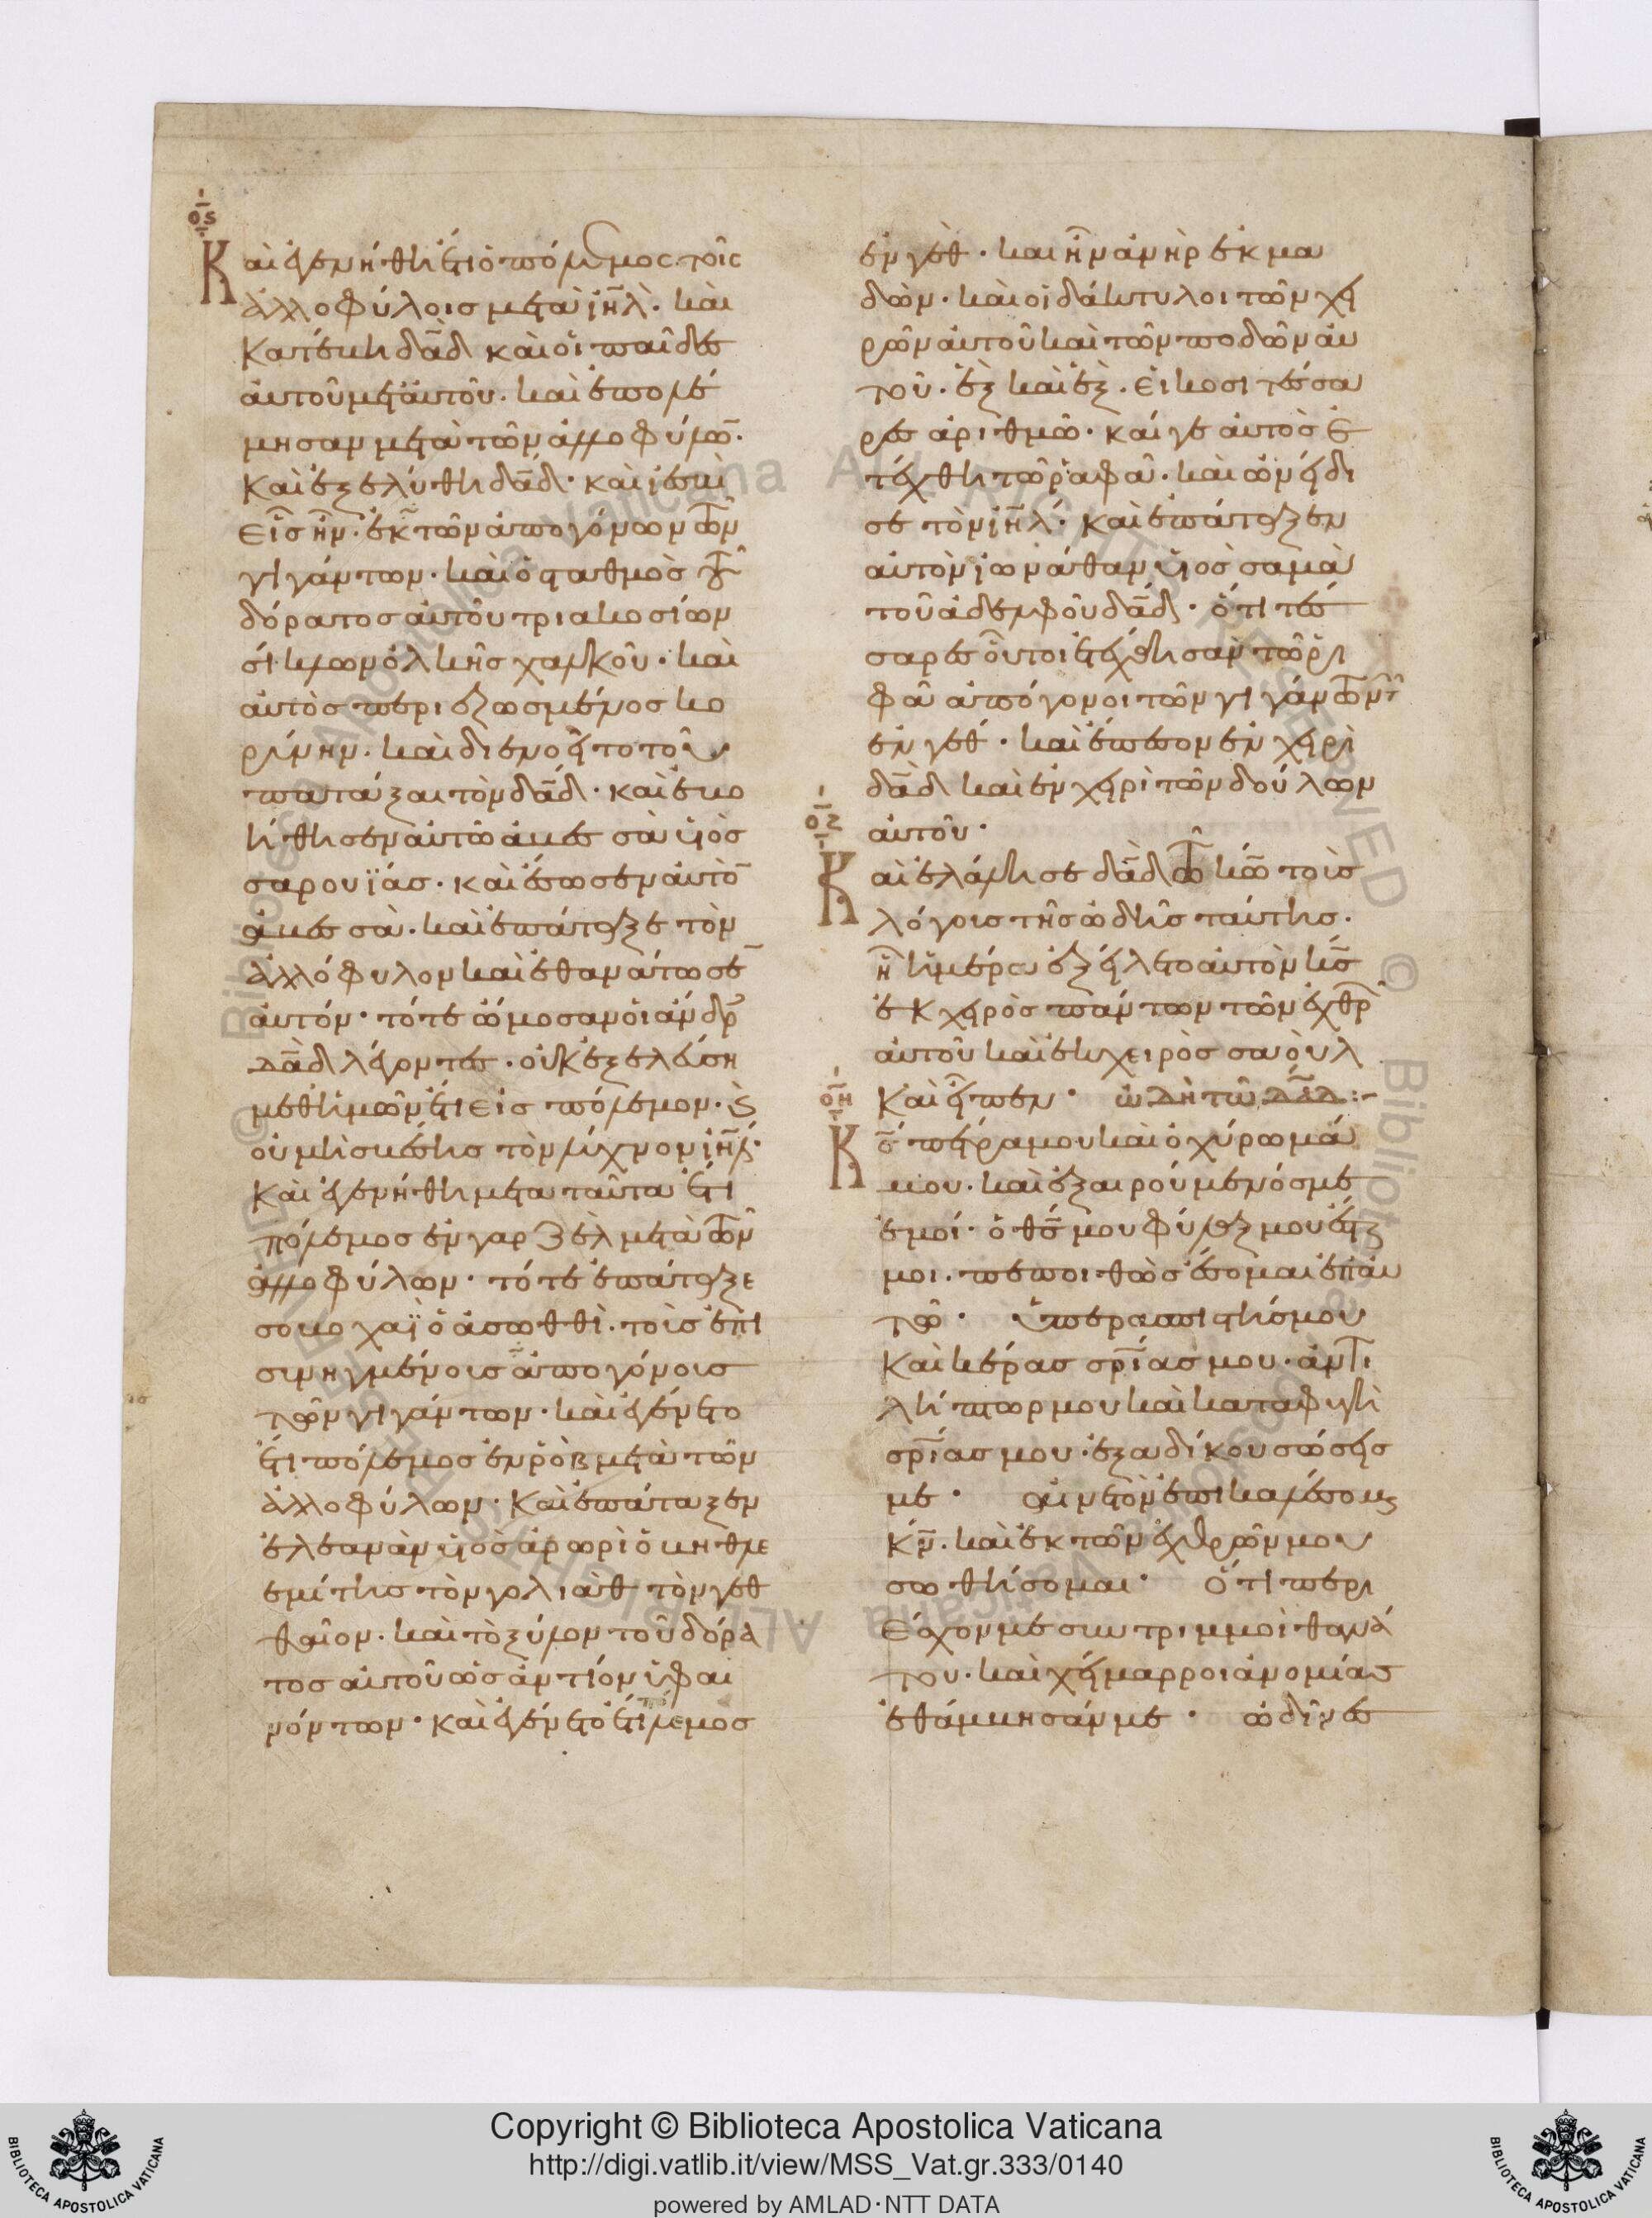 ος
Καὶ ἐγενήθη ἔτι ὁ πόλεμος τοῖς
ἀλλοφύλοις μετὰ ιηλ̄. καὶ
κατέβη δᾱδ καὶ οἱ παῖδες
αὐτοῦ μετ' αὐτοῦ. καὶ ἐπολέ
μησαν μετὰ τῶν ἀλλοφύλω̄.
καὶ ἐξελύθη δᾱδ· καὶ ἰεσβὶ
εἷς ἦν ἐκ τῶν ἀπογόνων τῶν
γιγάντων. καὶ ὁ σταθμὸς τοῦ
δόρατος αὐτοῦ τριακοσίων
σίκλων ὁλκῆς χαλκοῦ. καὶ
αὐτὸς περιεζωσμένος κο
ρύνην. καὶ διενοεῖτο τοῦ
πατάξαι τὸν δᾱδ· καὶ ἐβο
ήθησεν αὐτῶ ἀβεσσὰ υἱὸς
σαρουϊάς. καὶ ἔσωσεν αὐτὸ̄
ἀβεσσά. καὶ ἐπάταξε τὸν
ἀλλόφυλον καὶ ἐθανάτωσε̄
αὐτόν· τότε ὤμοσαν οἱ ἄνδρες
δᾱδ λέγοντες. οὐκ ἐξελεύση
μεθ' ἡμῶν ἔτι εἰς πόλεμον. καὶ
οὐ μὴ σβέσης τὸν λύχνον ιηλ̄.
καὶ ἐγενήθη μετὰ ταῦτα ἔτι
πόλεμος ἐν γαζὲλ μετὰ τῶν
ἀλλοφύλων· τότε ἐπάταξε
σοβοχαῒ ὁ ἀσωθθὶ. τοὺς ἐπι
συνηγμένους ἀπογόνους
τῶν γιγάντων. καὶ ἐγένετο
ἔτι πόλεμος ἐν ῥὸβ μετὰ τῶν
ἀλλοφύλων. καὶ ἐπάταξεν
ἐλεανὰν υἱὸς ἀρωρὶ ὁ βηθλε
εμίτης τὸν γολιὰθ τὸν γεθ
θαῖον. καὶ τὸ ξύλον τοῦ δόρα
τος αὐτοῦ ὡς ἀντίον ὑφαι
νόντων· καὶ ἐγένετο ἔτι πόλεμος
ἐν γέθ. καὶ ἦν ἀνὴρ ἐκ μα
δών. καὶ οἱ δάκτυλοι τῶν χει
ρῶν αὐτοῦ καὶ τῶν ποδῶν αὐ
τοῦ. ἓξ καὶ ἓξ. εἰκοσιτέσσα
ρες ἀριθμῶ. καίγε αὐτὸς ἐ
τέχθη τῶ ῥαφᾶ. καὶ ὠνείδι
σε τὸν ιηλ̄· καὶ ἐπάταξεν
αὐτὸν ἰωνάθαν υἱὸς σαμὰ
τοῦ ἀδελφοῦ δᾱδ. ὅτι τέσ
σαρες οὗτοι ἐτέχθησαν τῶ ῥα
φᾶ ἀπόγονοι τῶν γιγάντων τοῖς
ἐν γέθ. καὶ ἔπεσον ἐν χειρὶ
δᾱδ καὶ ἐν χειρὶ τῶν δούλων
οζ
αὐτοῦ.
Καὶ ἐλάλησε δᾱδ τῶ κω̄ τοὺς
λόγους τῆς ὠδῆς ταύτης.
ἧ ἡμέρα ἐξείλετο αὐτὸν κ̄ς
ἐκ χειρὸς πάντων τῶν ἐχθρῶν
αὐτοῦ καὶ ἐκ χειρὸς σαούλ
οη
καὶ εἶπεν· ὠδὴ τῶ δᾱδ:-
Κ̄ς πέτρα μου καὶ ὀχύρωμά
μου. καὶ ἐξαιρούμενός με
ἐμοί. ὁ θ̄ς μου φύλαξ μου ἔσται
μοι. πεποιθὼς ἔσομαι ἐπ' αὐ
τῶ· ὑπερασπιστής μου
καὶ κέρας σρ̄ίας μου. ἀντι
λήπτωρ μου καὶ καταφυγὴ
σρ̄ίας μου. ἐξ ἀδίκου σώσεις
με· αἰνετὸν ἐπικαλέσομαι
κ̄ν. καὶ ἐκ τῶν ἐχθρῶν μου
σωθήσομαι· ὅτι περι
έσχον με συντριμμοὶ θανά
του. καὶ χείμαρροι ἀνομίας
ἐθάμβησάν με· ὠδῖνες
Copyright © Biblioteca Apostolica Vaticana
http://digi.vatlib.it/view/MSS_Vat.gr.333/0140
powered by AMLAD·NTT DATA